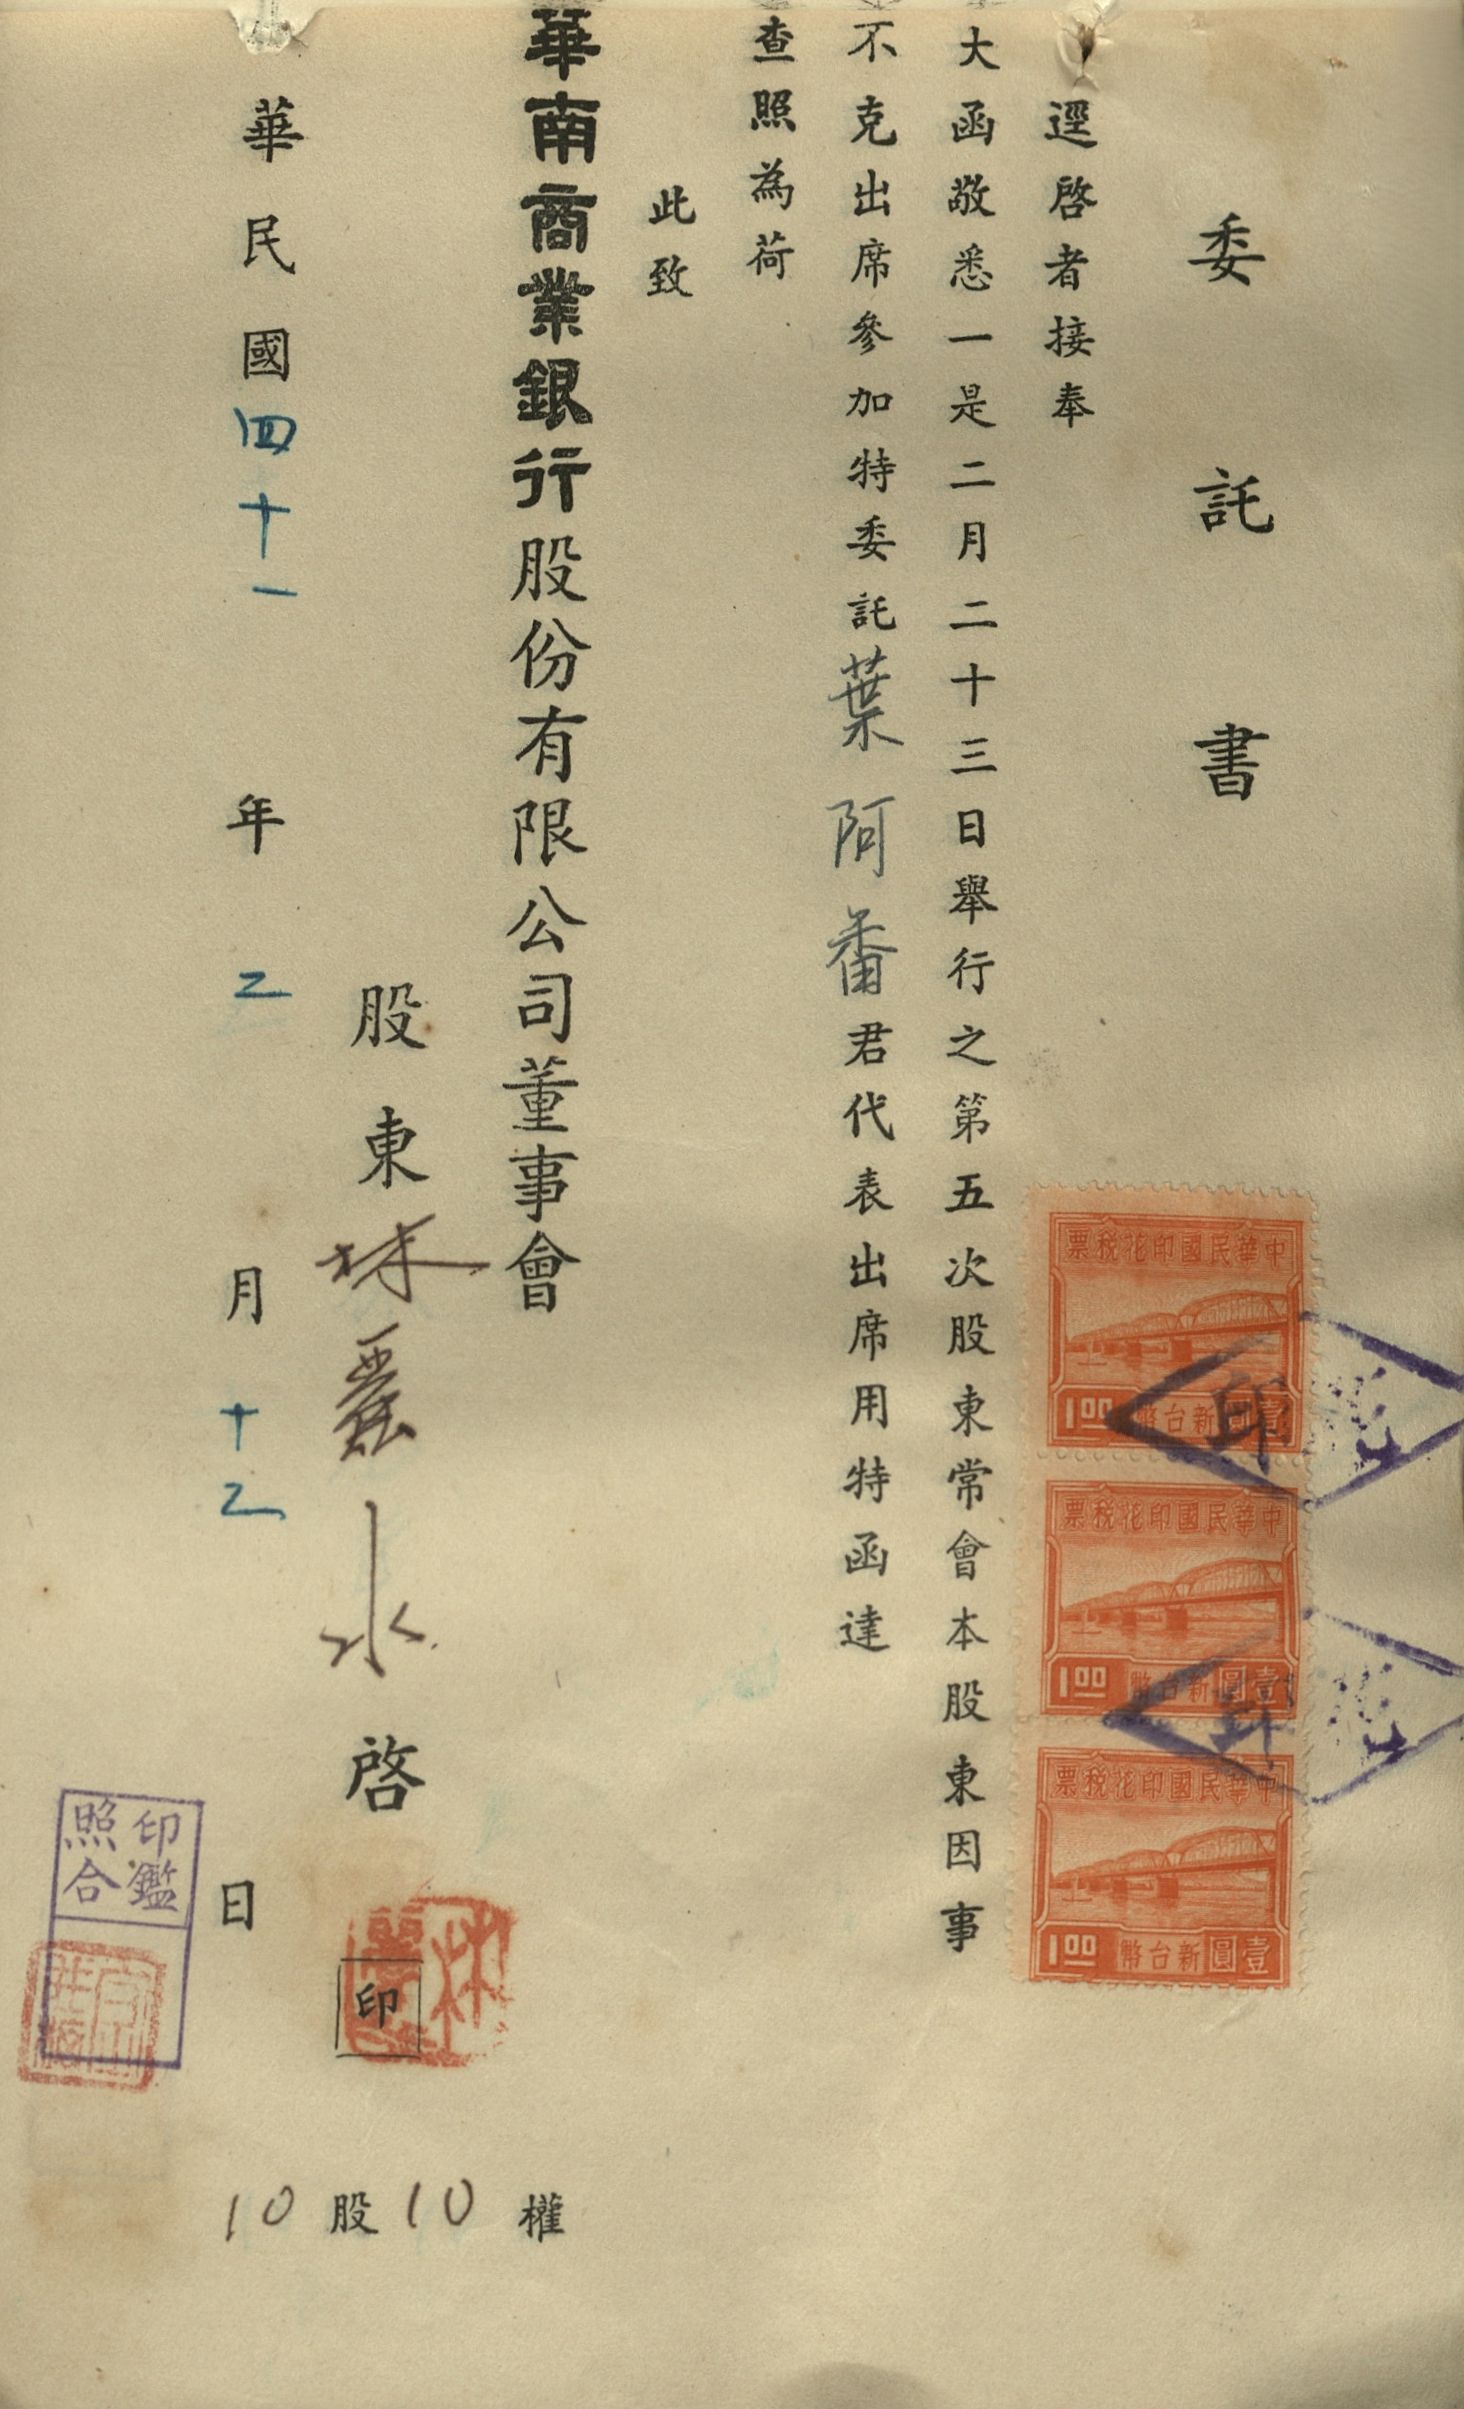 委託書
逕啓者接奉
大函敬悉一是二月二十三日舉行之第五次股東常會本股東因事
不克出席參加特委託葉阿番君代表出席用特函達
查照為荷
此致
華南商業銀行股份有限公司董事會
股東林水啓
印
華民國四十一年二月十二日
10股10權
中華民國印花稅票
壹圓新台幣
1.00
印
中華民國印花稅票
壹圓新台幣
1.00
中華民國印花稅票
壹圓新台幣
1.00
印鑑
照合